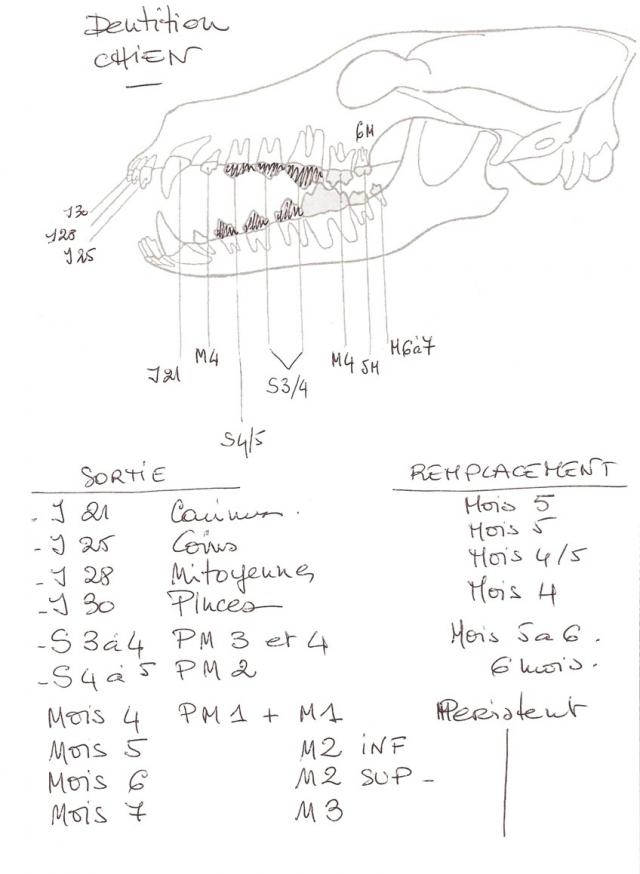 Dentition
CHIEN
6M
J30
J28
J25
J21
M4
S3/4
M4
5M
M6à7
S4/5
SORTIE
REMPLACEMENT
- J 21 Canines. Mois 5
- J 25 Coins Mois 5
- J 28 Mitoyennes Mois 4/5
- J 30 Pinces Mois 4
- S 3 à 4 PM 3 et 4 Mois 5 à 6.
- S 4 à 5 PM 2 6 mois.
Mois 4 PM1 + M1 Persistent
Mois 5 M2 INF
Mois 6 M2 SUP -
Mois 7 M3